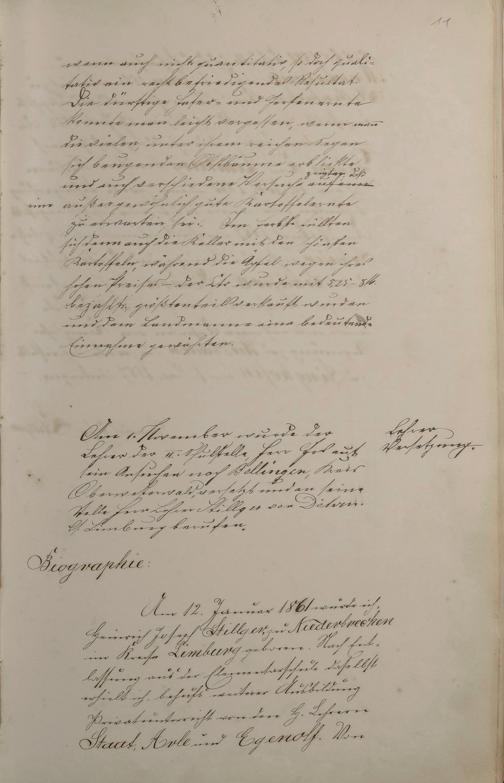 11
wenn auch nicht quantitativ, so doch quali-
tativ ein recht befriedigendes Resultat.
Die dürftige Hafer- und Gerstenernte
konnte man leicht vergessen, wenn man
die vielen, unter ihrem reichen Segen
sich beugenden Obstbäume erblickte
und auch verschiedene Versuche zeigten, daß
eine außergewöhnlich gute Kartoffelernte
zu erwarten sei. Im Herbst füllten
sich denn auch die Keller mit den
Kartoffeln, während die Äpfel wegen ihres
hohen Preises – der Ctr wurde mit
bezahlt, größtenteils verkauft wurden
und dem Landmanne eine bedeutende
Einnahme gewährten.
Am 1. November wurde der
Lehrer
Lehrer der II. Schulstelle, Herr auf
Versetzung.
sein Ansuchen nach Bellingen, Kreis
Oberwesterwald, versetzt und an seine
Stelle Herr Lehrer Stillger von
b/ Limburg berufen.
Biographie:
Am 12. Januar 1861 wurde ich,
Heinrich Joseph Stillger, zu Niederbrechen
im Kreise Limburg geboren. Nach Ent-
lassung aus der Elementarschule daselbst
erhielt ich behufs weiterer Ausbildung
Privatunterricht von den H. Lehrern
Staat, Arle und Egenolf. Von